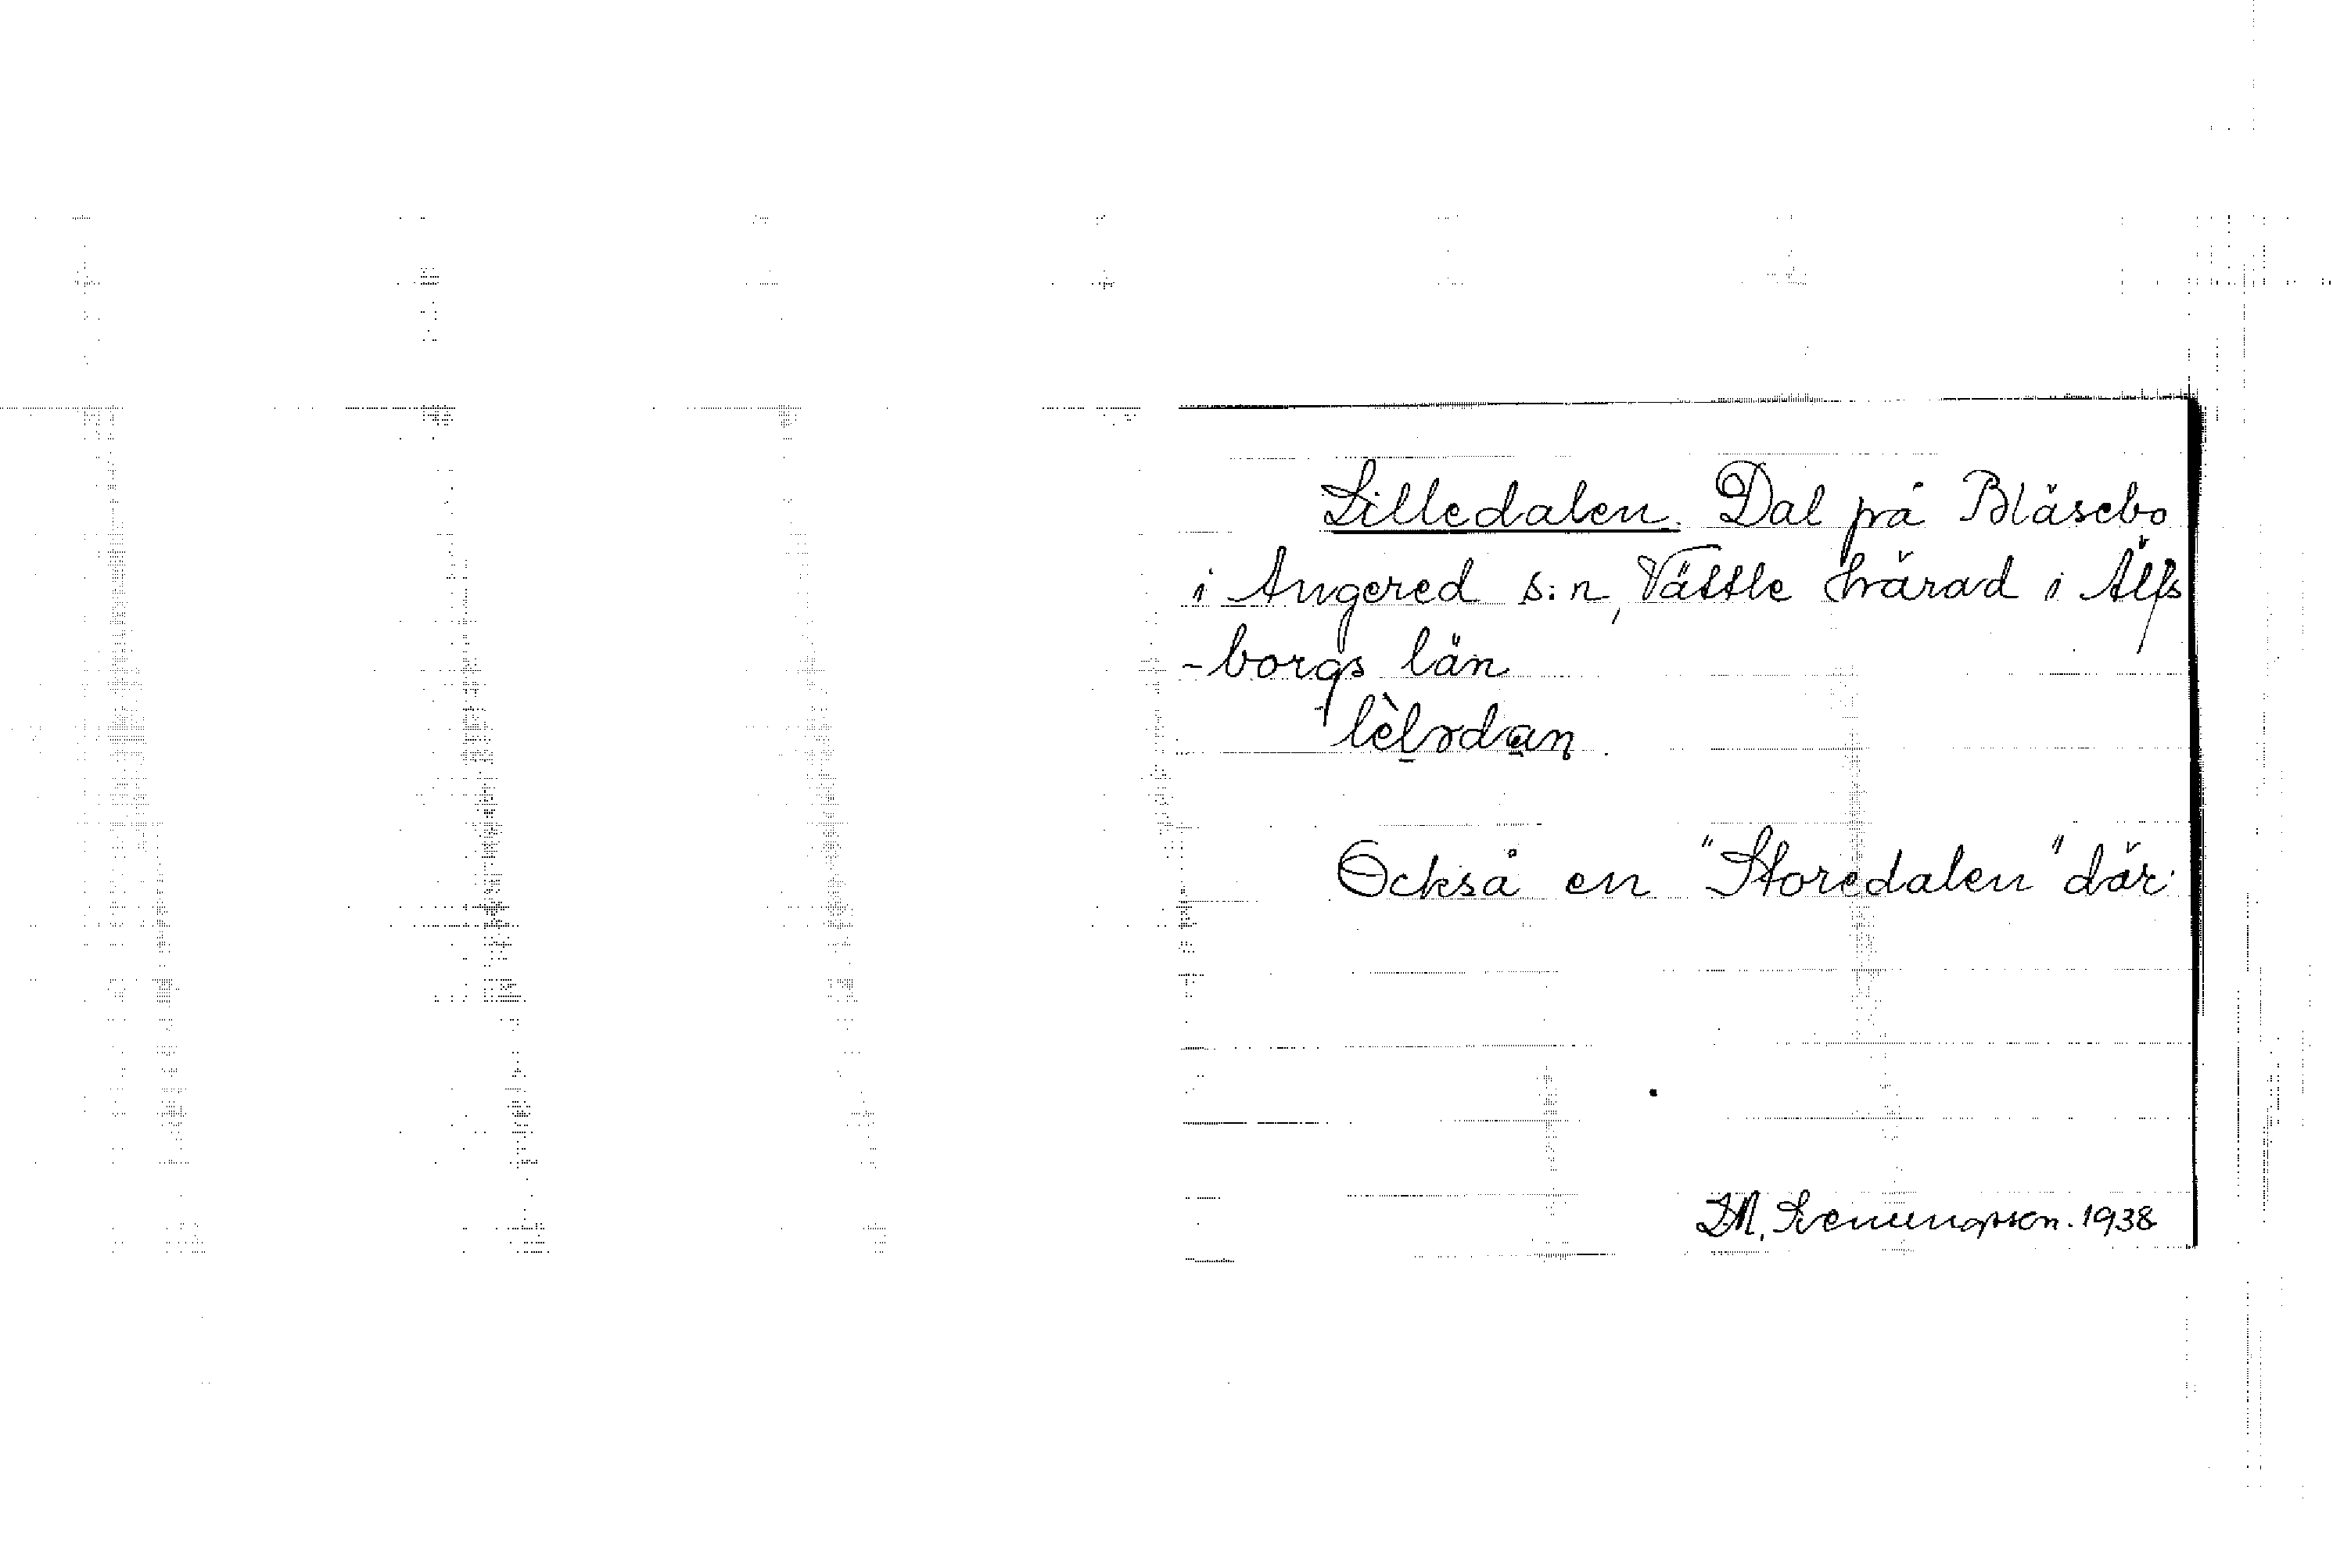 Lilledalen. Dal på Blåsebo
i Angered s:n, Vättle härad i Älfs
-borgs län
lèlrdan.
Också en "Storedalen" där.
1938